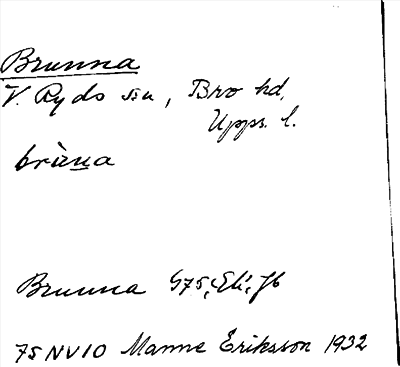 Brunna
V. Ryds sn, Bro hd,
Upps. l.
brùna
Brunna G75, Ek, Jb
75 NV10 Manne Eriksson 1932